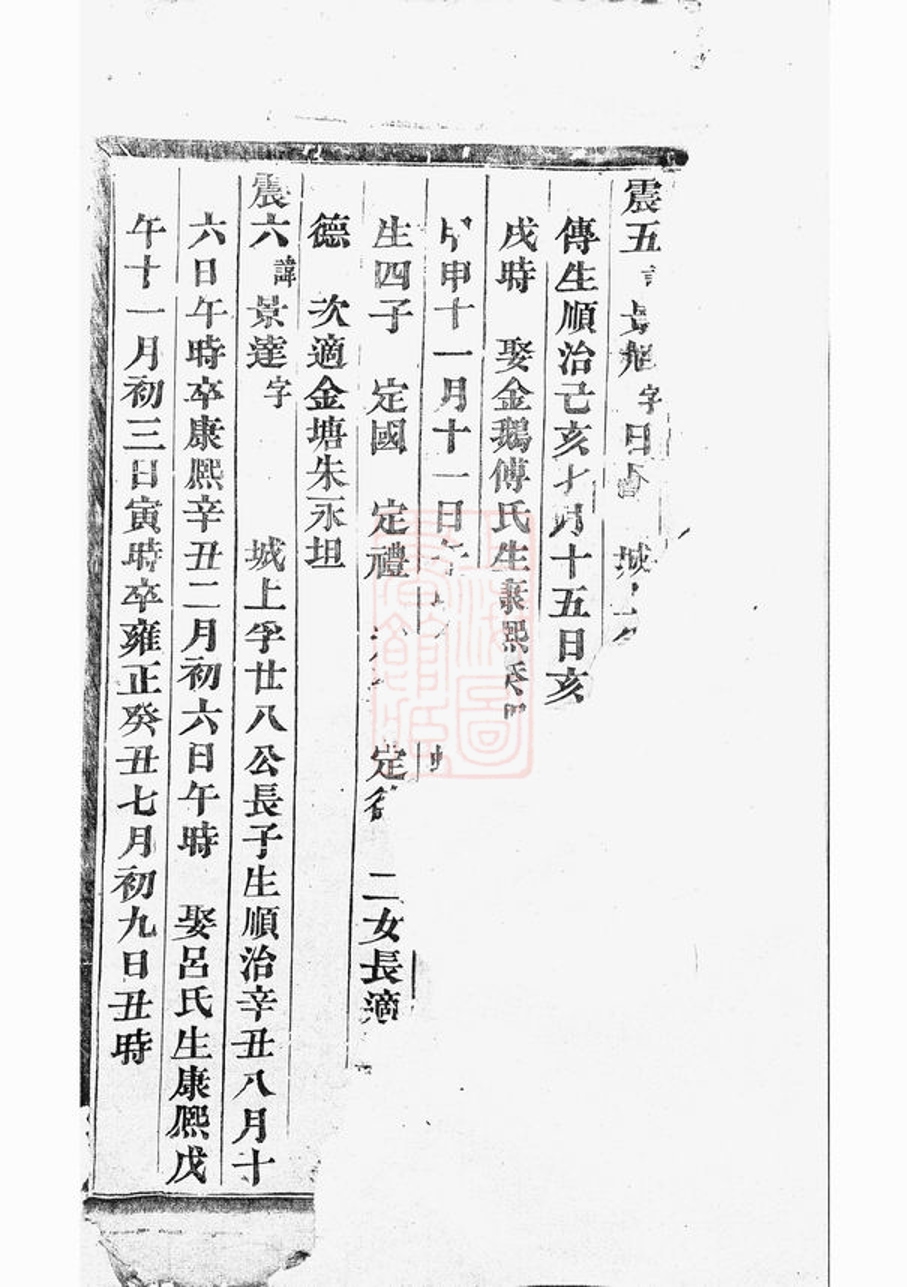 震五 字日 城
傳生順治己亥 月十五日亥
戌時 娶金鵝傅氏生康熙癸
甲申十一月十一日
生四子 定國 定禮 定 二女長適
德 次適金塘朱永坦
震六諱景達字 城上孚廿八公長子生順治辛丑八月十
六日午時卒康熙辛丑二月初六日午時 娶呂氏生康熙戊
午十一月初三日寅時卒雍正癸丑七月初九日丑時